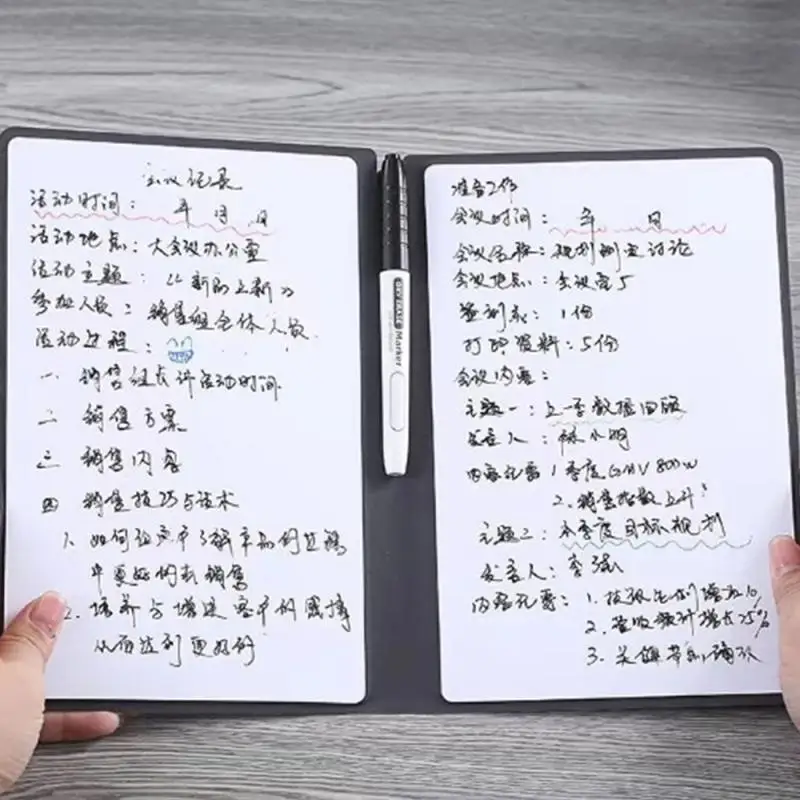 会议记录
活动时间： 年 月 日
活动地点：大会议办公室
活动主题：以新的上新为
参加人员：销售组全体人员
活动过程：
一 销售组长讲活动时间
二 销售方案
三 销售内容
四 销售技巧与话术
1、如何在客户了解产品的过程
中更好的去销售
2、培养与增进客户的感情
从而达到更好的
准备工作
会议时间： 年 日
会议名称：规划制定讨论
会议地点：会议室5
签到表：1份
打印资料：5份
会议内容：
主题一：上一季数据回顾
发言人：林小明
内容记要 1季度GMV 800w
2、销售指数上升
主题二：本季度目标规划
发言人：李强
内容记要：1.
2. 增长25%
3.
Marker